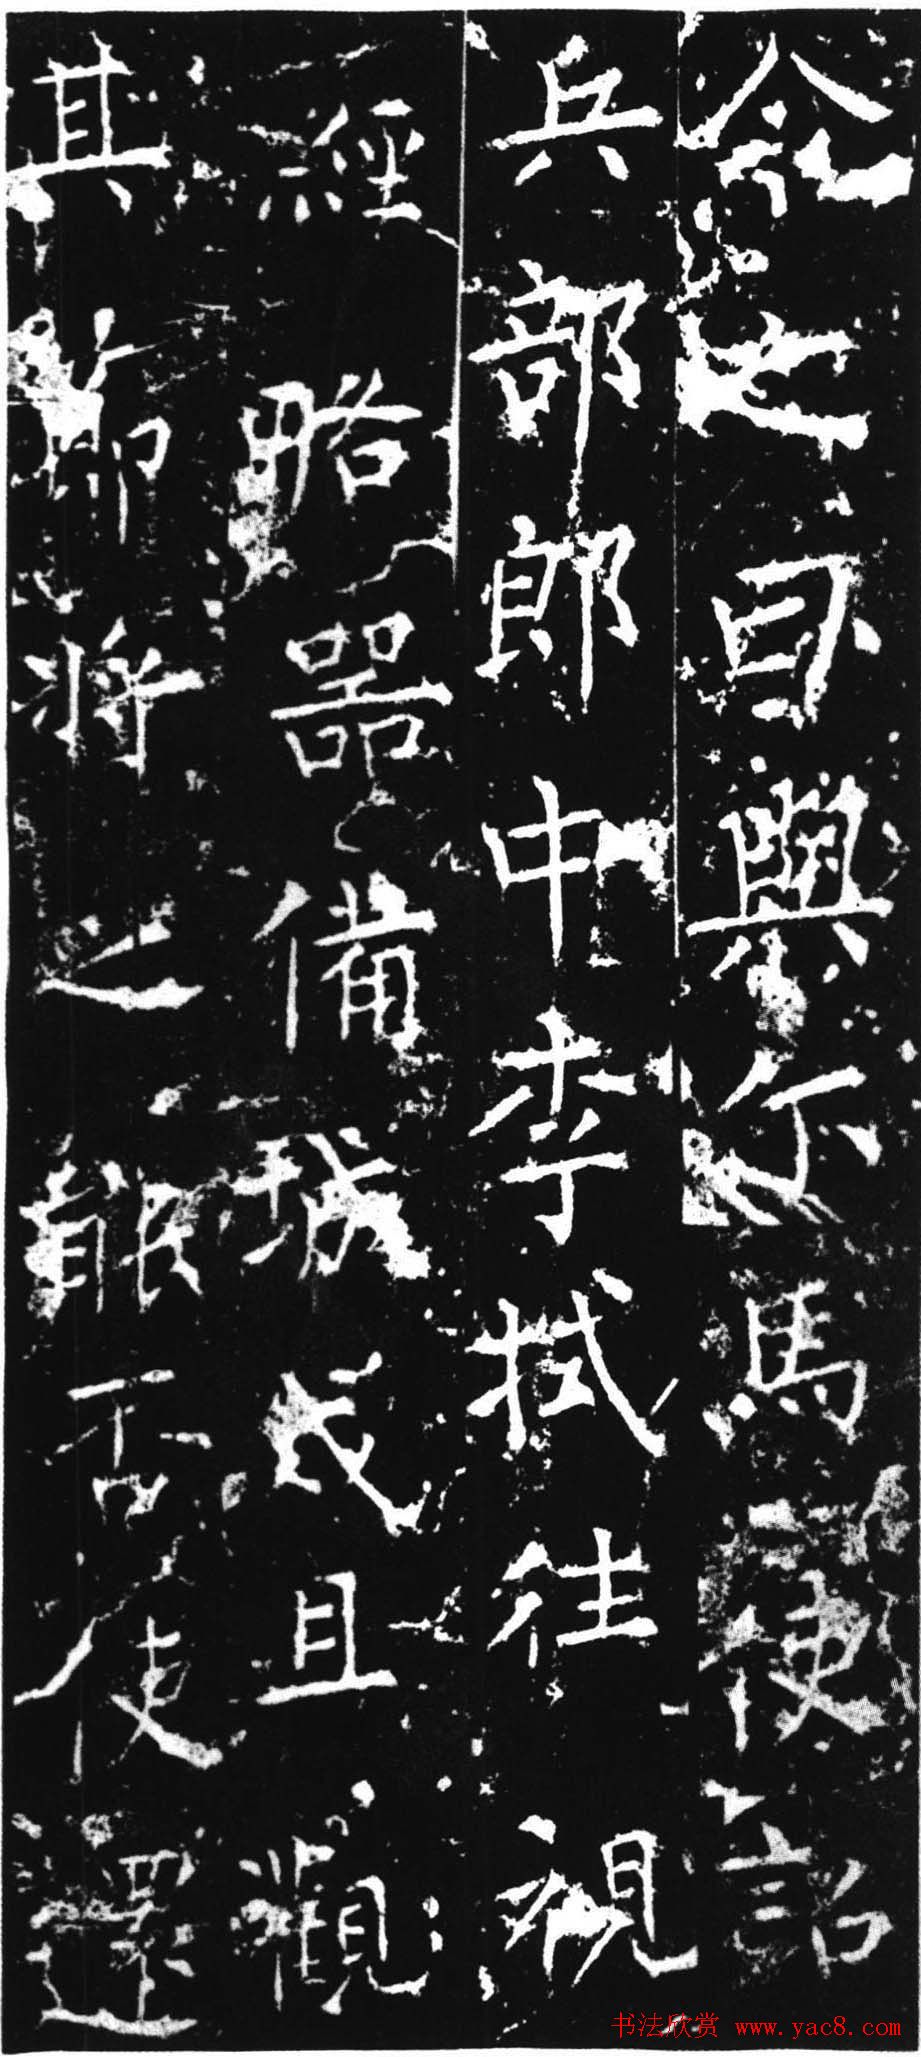 之與馬使詔
兵部郎中李拭往視
經略器備城戍且觀
其節將之能否使還
书法欣赏 www.yac8.com